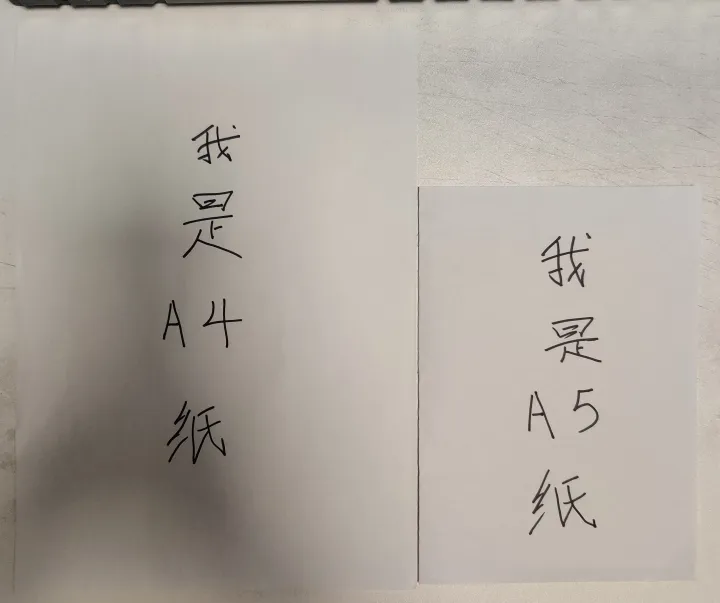 我
是
A4
纸
我
是
A5
纸